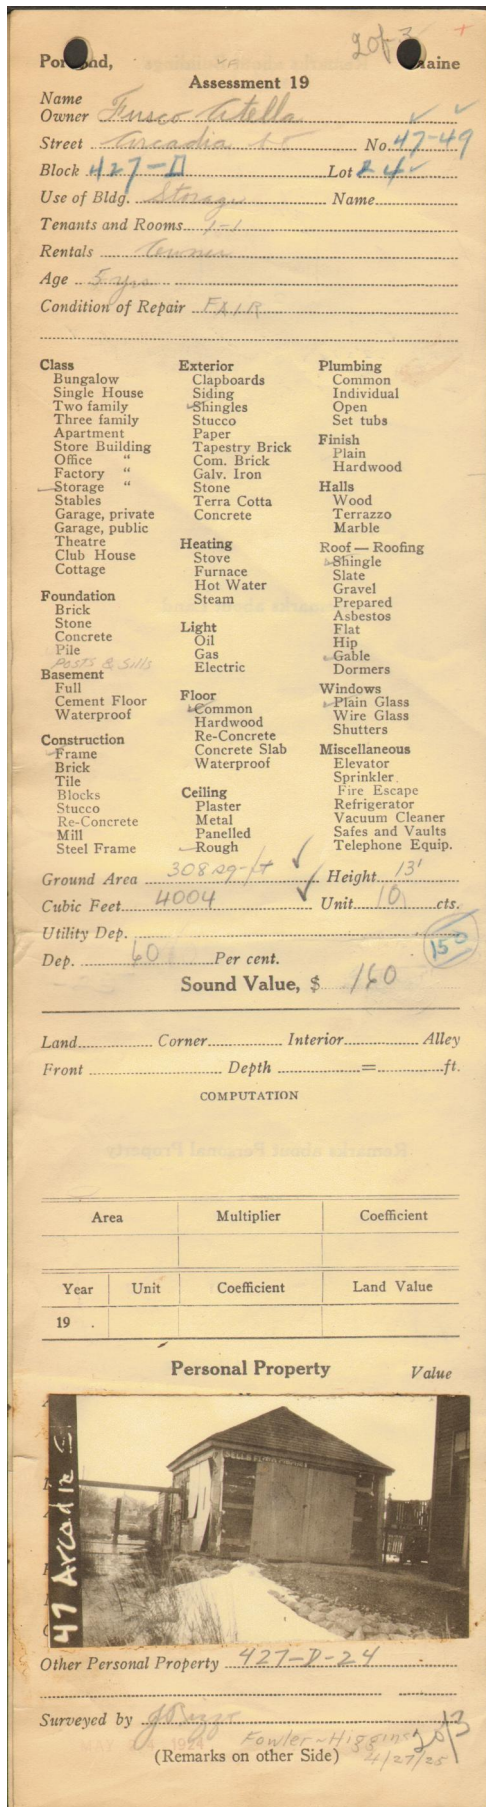 2 of 3
Portland, Maine
Assessment 19
Name
Owner Fusco Atella
Street Arcadia St No. 47-49
Block 427-D Lot 24
Use of Bldg. Storage Name
Tenants and Rooms 1-1
Rentals Owner
Age 5 yrs
Condition of Repair FAIR
Class
Bungalow
Single House
Two family
Three family
Apartment
Store Building
Office "
Factory "
Storage "
Stables
Garage, private
Garage, public
Theatre
Club House
Cottage
Foundation
Brick
Stone
Concrete
Pile
Posts & Sills
Basement
Full
Cement Floor
Waterproof
Construction
Frame
Brick
Tile
Blocks
Stucco
Re-Concrete
Mill
Steel Frame
Exterior
Clapboards
Siding
Shingles
Stucco
Paper
Tapestry Brick
Com. Brick
Galv. Iron
Stone
Terra Cotta
Concrete
Heating
Stove
Furnace
Hot Water
Steam
Light
Oil
Gas
Electric
Floor
Common
Hardwood
Re-Concrete
Concrete Slab
Waterproof
Ceiling
Plaster
Metal
Panelled
Rough
Plumbing
Common
Individual
Open
Set tubs
Finish
Plain
Hardwood
Halls
Wood
Terrazzo
Marble
Roof — Roofing
Shingle
Slate
Gravel
Prepared
Asbestos
Flat
Hip
Gable
Dormers
Windows
Plain Glass
Wire Glass
Shutters
Miscellaneous
Elevator
Sprinkler
Fire Escape
Refrigerator
Vacuum Cleaner
Safes and Vaults
Telephone Equip.
Ground Area 308 sq-ft Height 13'
Cubic Feet 4004 Unit 10 cts.
Utility Dep.
150
Dep. 60 Per cent.
Sound Value, $ 160
Land Corner Interior Alley
Front Depth = ft.
COMPUTATION
Area Multiplier Coefficient
Year Unit Coefficient Land Value
19
Personal Property Value
47 Arcadia St
Other Personal Property 427-D-24
Surveyed by J Rizzo
Fowler-Higgins 2 of 3
MAY 1924
(Remarks on other Side) 4/27/25